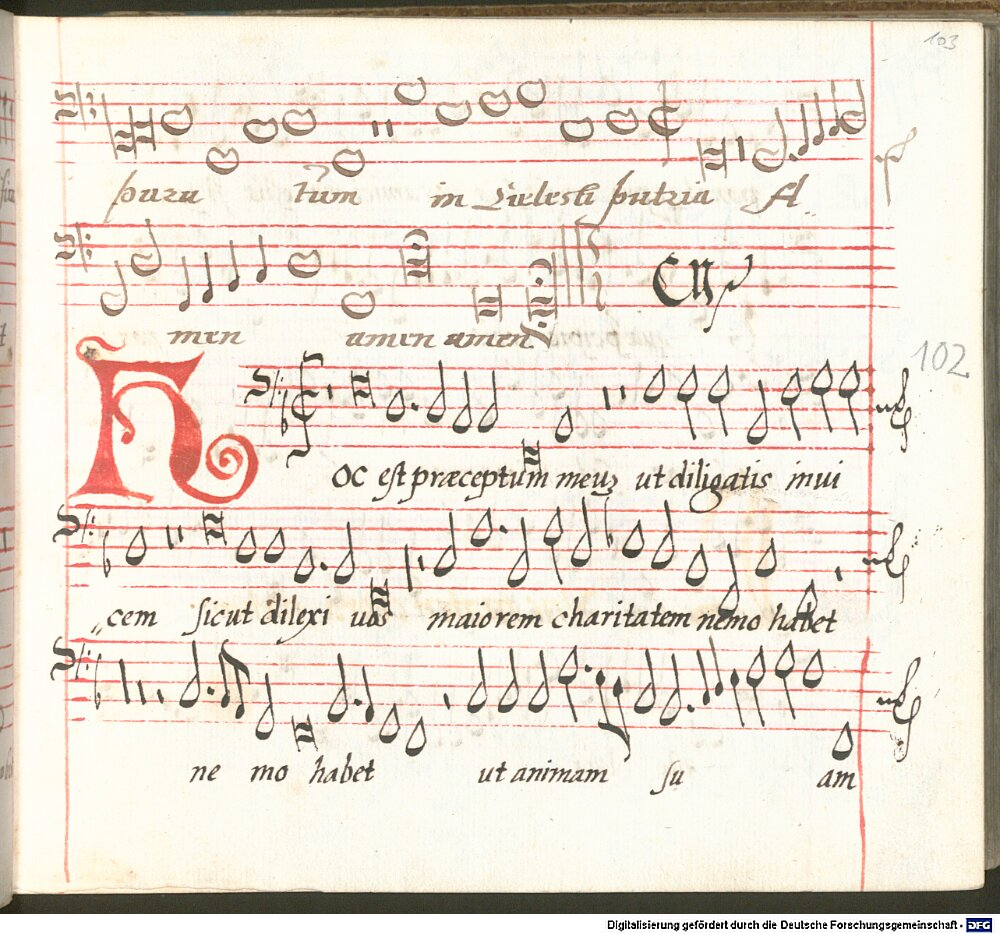 103
paratum in cœlesti patria A
men amen amen
102
HOC est præceptum meuz ut diligatis inui
cem sicut dilexi uos maiorem charitatem nemo habet
ne mo habet ut animam su am
Digitalisierung gefördert durch die Deutsche Forschungsgemeinschaft - DFG